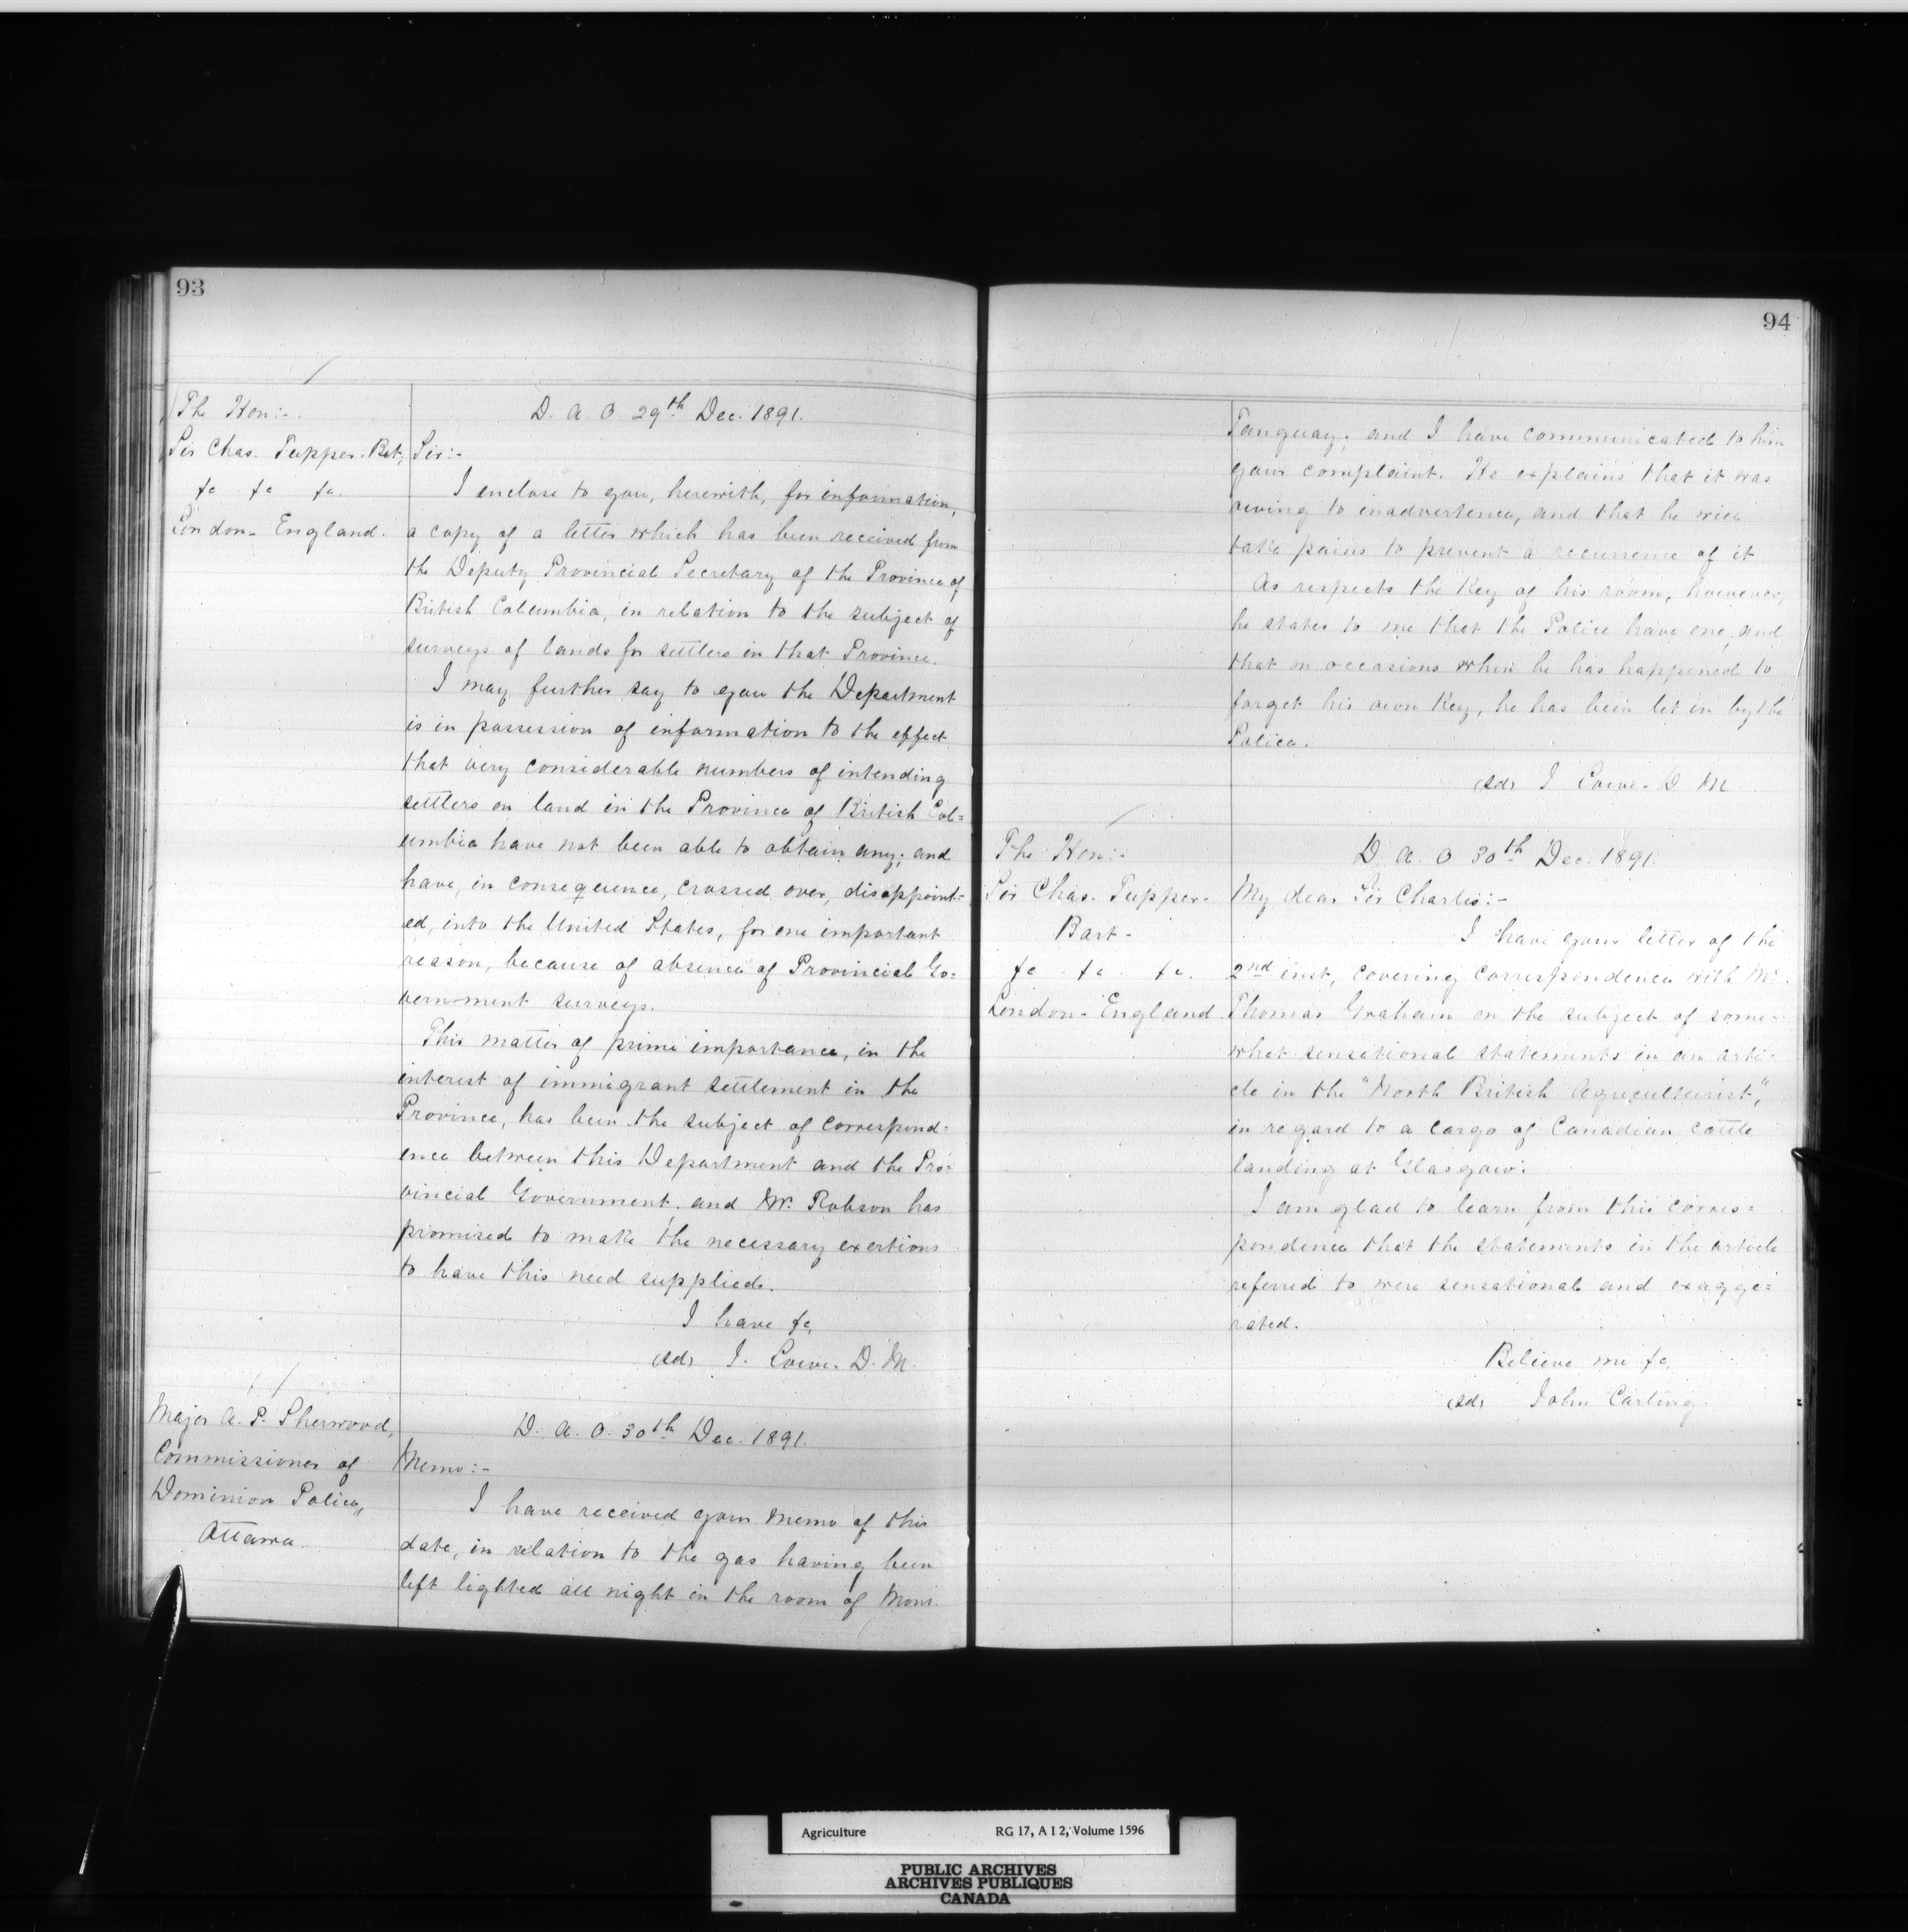 93
The Hon:-
Sir Chas. Tupper. Bt,
&c &c &c.
London - England.
D. A. O. 29th Dec. 1891.
Sir:-
I enclose to you, herewith, for information,
a copy of a letter which has been received from
the Deputy Provincial Secretary of the Province of
British Columbia, in relation to the subject of
surveys of lands for settlers in that Province.
I may further say to you the Department
is in possession of information to the effect
that very considerable numbers of intending
settlers on land in the Province of British Col=
umbia have not been able to obtain any; and
have, in consequence, crossed over, disappoint=
ed, into the United States, for one important
reason, because of absence of Provincial Go=
vernment surveys.
This matter of prime importance, in the
interest of immigrant settlement in the
Province, has been the subject of correspond=
ence between this Department and the Pro=
vincial Government. and Mr. Robson has
promised to make the necessary exertions
to have this need supplied.
I have &c,
(sd) J. Lowe. D. M.
Major A. P. Sherwood,
Commissioner of
Dominion Police,
Ottawa.
D. A. O. 30th Dec. 1891.
Memo:-
I have received your memo of this
date, in relation to the gas having been
left lighted all night in the room of Mons.
94
Tanguay; and I have communicated to him
your complaint. He explains that it was
owing to inadvertence, and that he will
take pains to prevent a recurrence of it
As respects the Key of his room, however,
he states to me that the Police have one, and
that on occasions when he has happened to
forget his own Key, he has been let in by the
Police.
(sd) J Lowe. D M
The Hon:-
Sir Chas. Tupper-
Bart-
&c &c &c.
London - England.
D. A. O 30th Dec. 1891.
My dear Sir Charles:-
I have your letter of the
2nd inst, covering correspondence with Mr.
Thomas Graham on the subject of some-
what sensational statements in an arti-
cle in the "North British Agriculturist,"
in regard to a cargo of Canadian Cattle
landing at Glasgow.
I am glad to learn from this corres=
pondence that the statements in the article
referred to were sensational and exagge=
rated.
Believe me &c,
(sd) John Carling.
Agriculture RG 17, A I 2, Volume 1596
PUBLIC ARCHIVES
ARCHIVES PUBLIQUES
CANADA